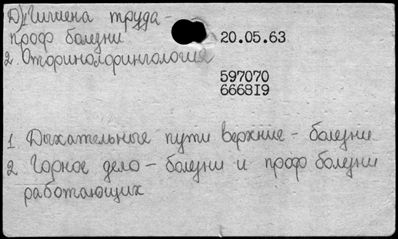 1) Гигиена труда -
проф болезни
20.05.63
2. Оторинолорингология
597070
6668I9
1 Дыхательные пути верхние - болезни
2 Горное дело - болезни и проф болезни
работающих